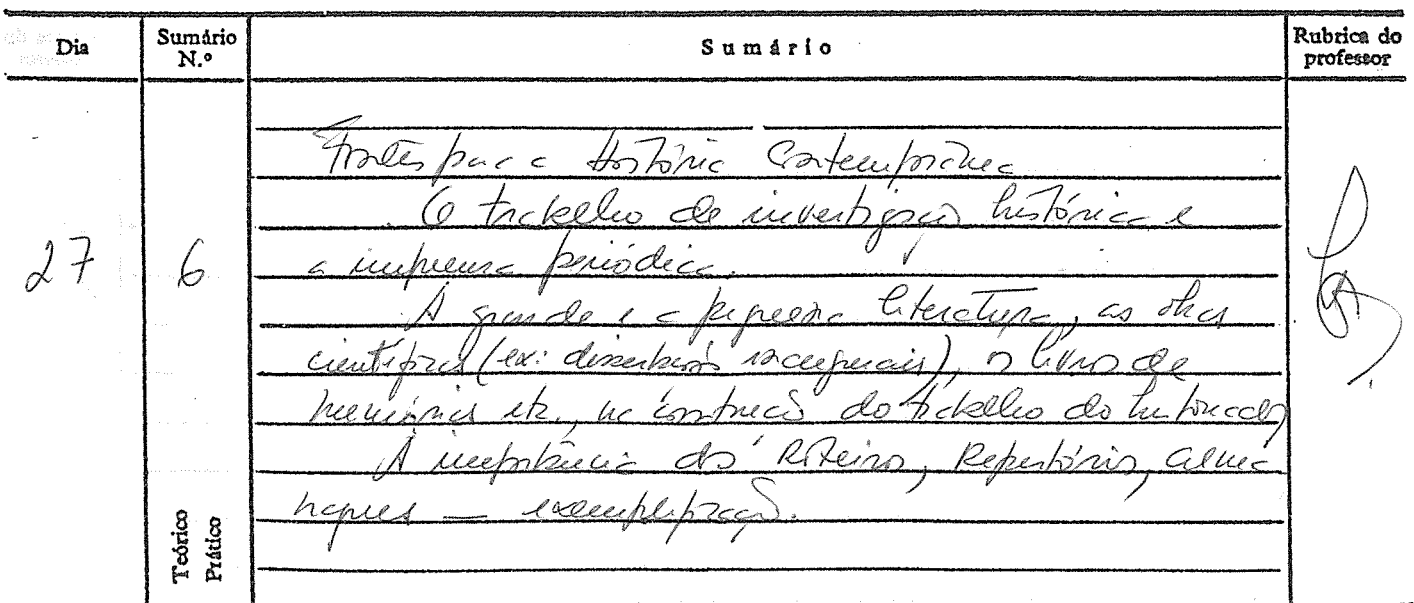 Dia
Sumário N.º
Sumário
Rubrica do professor
Fontes para a História Contemporânea
O trabalho de investigação histórica e
27
6
a imprensa periódica.
A grande e a pequena literatura, as obras
científicas (ex: dissertações inaugurais), o livro de
memórias etc., na construção do trabalho do historiador
A importância dos Roteiros, Repertórios, alma
naques — exemplificação.
Teórico
Prático